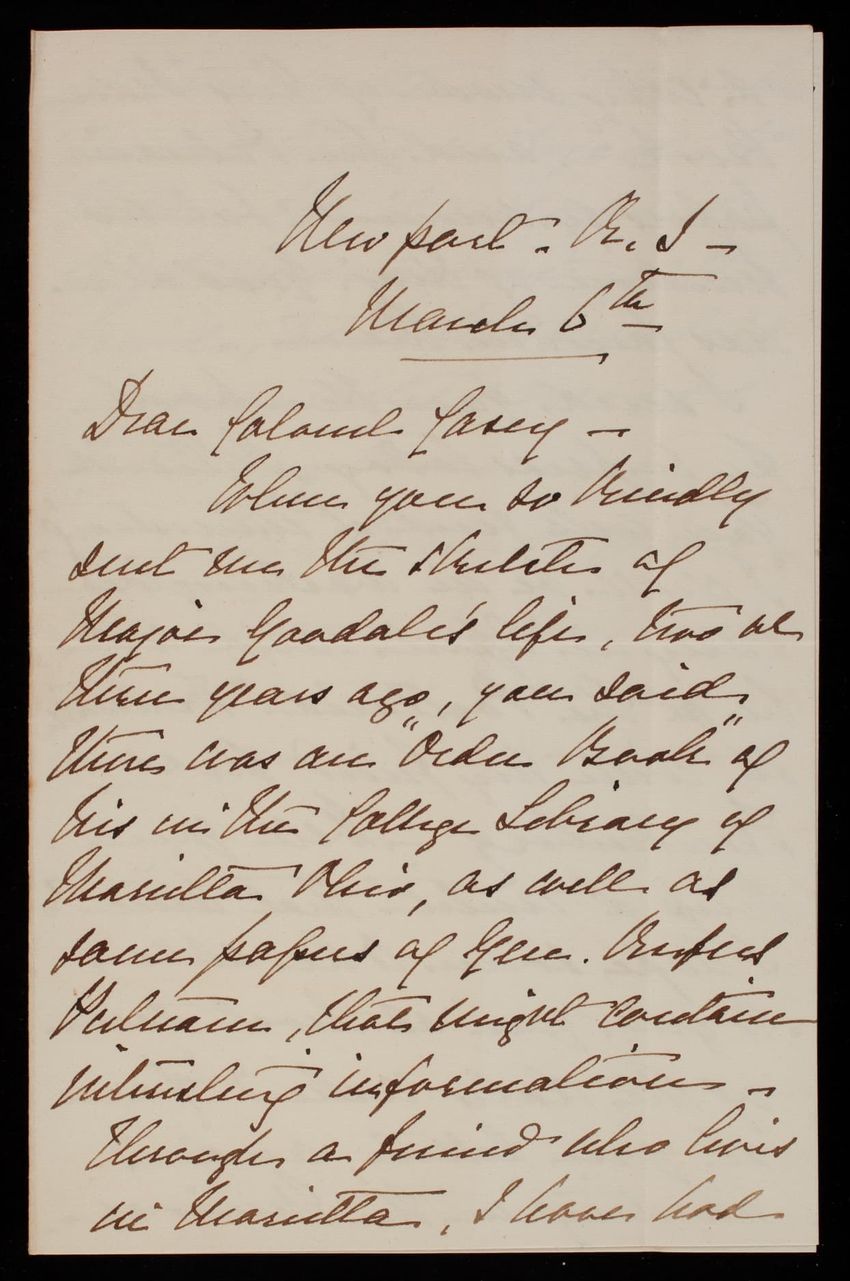 Newport. R. I -
March 6th
Dear Colonel Casey -
When you so kindly
sent me the sketch of
Major Goodale's life, two or
three years ago, you said
there was an "Order Book" of
his in the College Library of
Marietta Ohio, as well as
some papers of Gen. Rufus
Putnam, that might contain
interesting information -
Through a friend who lives
in Marietta, I have had